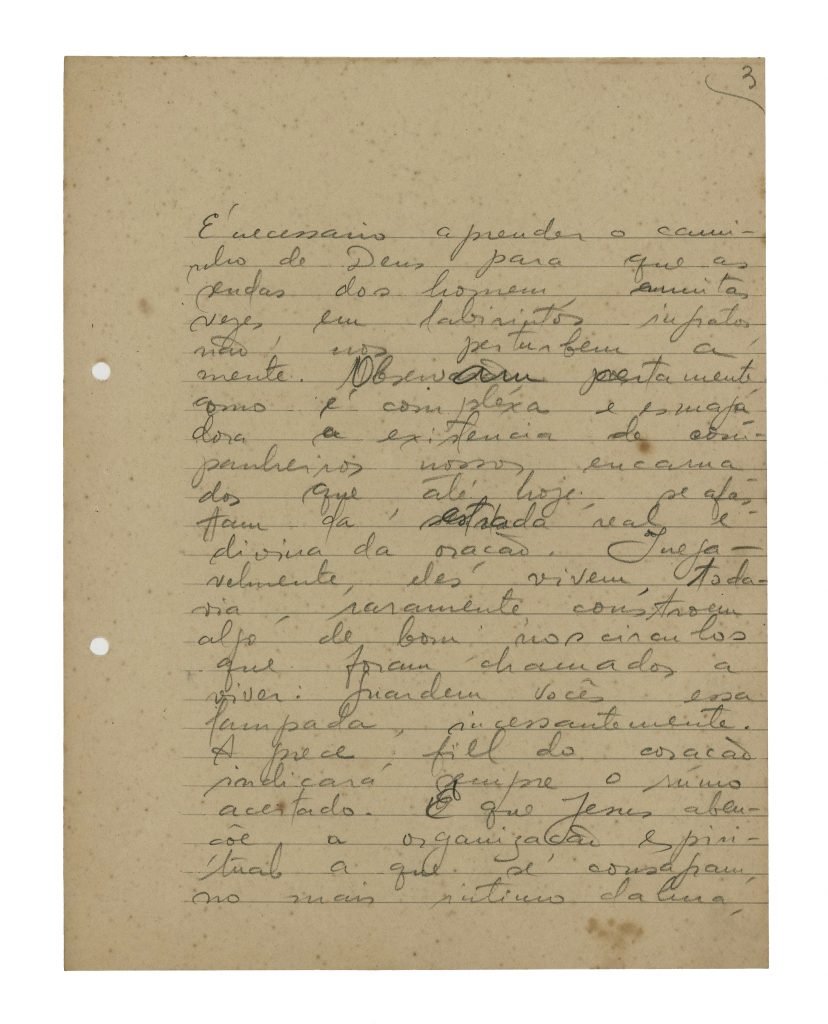 3
É necessario aprender o cami-
nho de Deus para que as
sendas dos homem, muitas
vezes em labirintos ingratos
não nos perturbem a
mente. Observam certamente
como é compléxa e esmaga
dora a existencia de com-
panheiros nossos, encarna
dos que até hoje, se afás
tam da estrada real e
divina da oração. Inega-
velmente, eles vivem, toda-
via, raramente constroem
algo de bom nos circulos
que foram chamados a
viver. Guardem vocês essa
lampada, incessantemente.
A prece fiel do coração
indicará sempre o rúmo
acertado. E que Jesus aben-
çôe a organização espiri-
tual a que se consagram,
no mais intimo dalma,